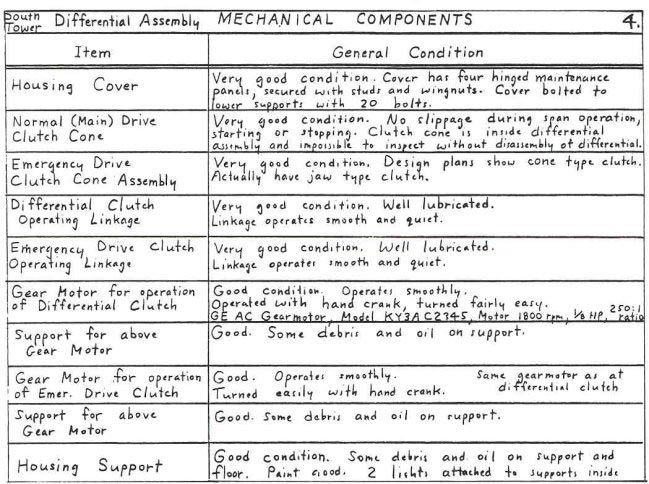 South Tower Differential Assembly MECHANICAL COMPONENTS 4.
Item General Condition
Housing Cover
Very good condition. Cover has four hinged maintenance
panels, secured with studs and wingnuts. Cover bolted to
tower supports with 20 bolts.
Normal (Main) Drive
Clutch Cone
Very good condition. No slippage during span operation,
starting or stopping. Clutch cone is inside differential
assembly and impossible to inspect without disassembly of differential.
Emergency Drive
Clutch Cone Assembly
Very good condition. Design plans show cone type clutch.
Actually have jaw type clutch.
Differential Clutch
Operating Linkage
Very good condition. Well lubricated.
Linkage operates smooth and quiet.
Emergency Drive Clutch
Operating Linkage
Very good condition. Well lubricated.
Linkage operates smooth and quiet.
Gear Motor for operation
of Differential Clutch
Good condition. Operates smoothly.
Operated with hand crank, turned fairly easy.
GE AC Gearmotor, Model KY3AC2345, Motor 1800 rpm, 1/8 HP, 250:1 ratio
Support for above
Gear Motor
Good. Some debris and oil on support.
Gear Motor for operation
of Emer. Drive Clutch
Good. Operates smoothly. Same gearmotor as at
Turned easily with hand crank. differential clutch
Support for above
Gear Motor
Good. Some debris and oil on support.
Housing Support
Good condition. Some debris and oil on support and
floor. Paint good. 2 lights attached to supports inside